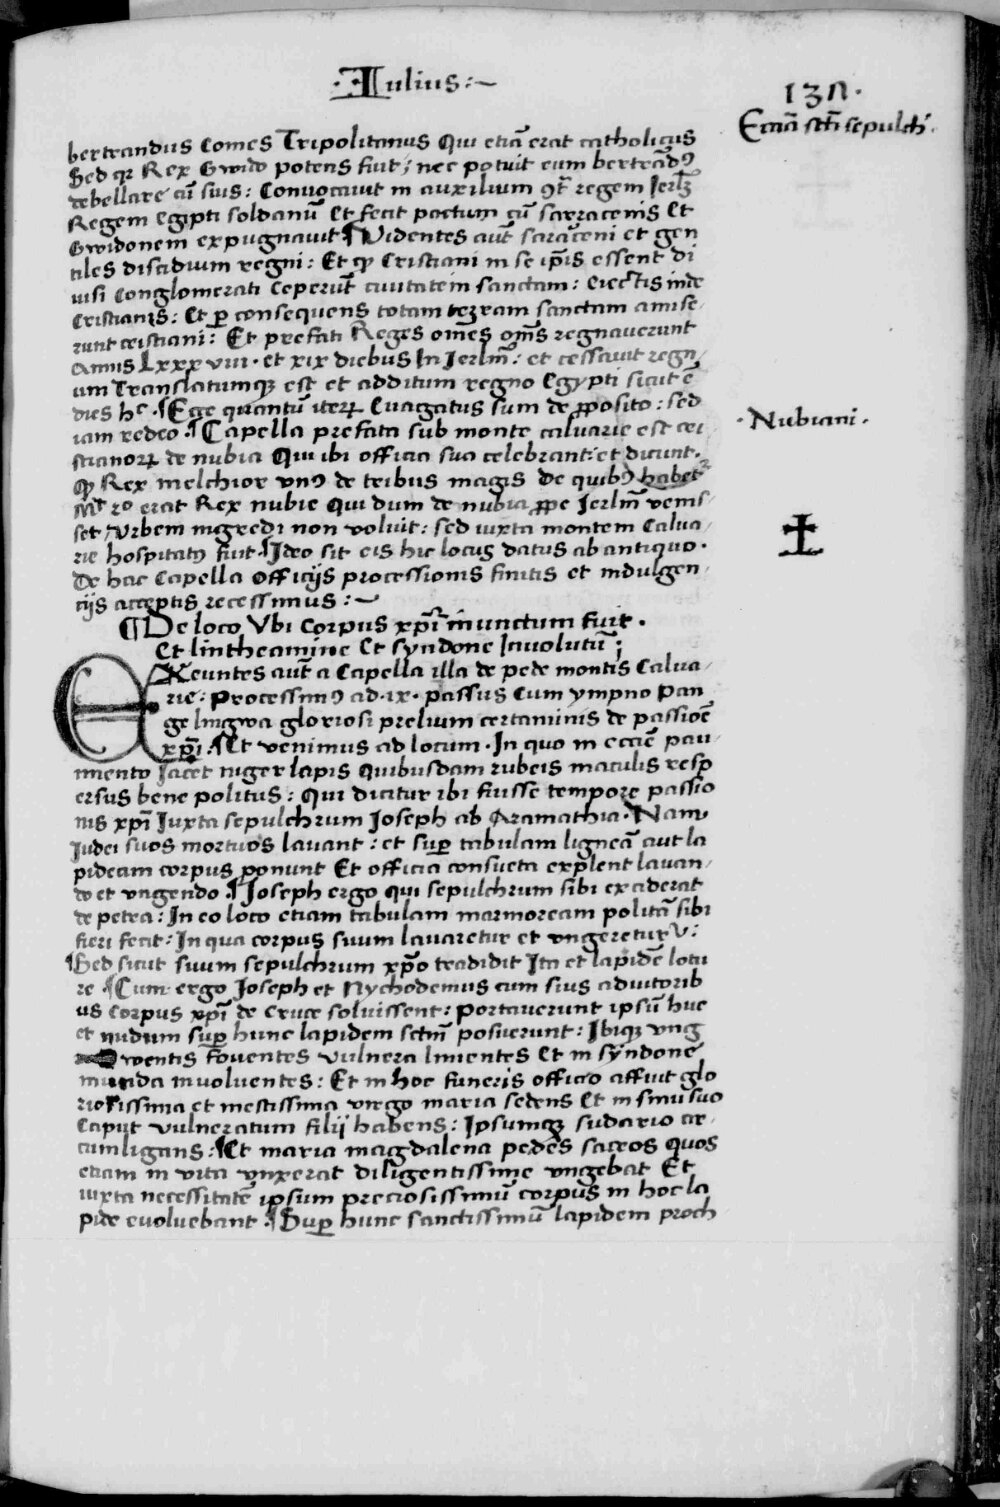 ·Iulius:~
137.
Eccia scti sepulch.
bertrandus Comes Tripolitanus Qui etiā erat catholicus
Sed qr Rex Gwido potens fuit; nec potuit eum bertrādꝰ
debellare cū suis: Convocauit in auxilium ꝯtᷓ regem Jerlꝫ
Regem Egipti soldanū Et fecit pactum cū sarracenis Et
Gwidonem expugnauit ¶Videntes aūt saraceni et gen
tiles discidium regni: Et qꝫ Cristiani in se ip̄is essent di
uisi Conglomerati Ceperūt ciuitatem sanctam: Eiectis inde
Cristianis: Et ꝑ consequens totam terram sanctam amise,
runt cristiani: Et prefati Reges om̄es om̄s regnauerunt
Annis Lxxxviii· et xix diebus In Jerlm̄: et cessauit regn,
um Translatumqꝫ est et additum regno Egypti sicut ē
dies hᶜ. ¶Ecce quantū iterꝝ Euagatus sum de ꝓposito: sed
iam redeo ·¶Capella prefata sub monte caluarie est cri
stianoꝝ de nubia Qui ibi officia sua celebrant: et dicunt.
qꝫ Rex melchior vnꝰ de tribus magis de quibꝰ habet
Mᵗ 2º erat Rex nubie Qui dum de nubia ꝓpe Jerlm̄ venis,
set Vrbem ingredi non voluit: sed iuxta montem Calua,
rie hospitatꝰ fuit. Ideo sit eis hic locus datus ab antiquo.
De hac Capella Officijs processionis finitis et indulgen,
cijs acceptis recessimus:~
·Nubiani·
¶De loco Vbi Corpus xp̄i inunctum fuit.
Et lintheamine Et syndone Inuolutū;
EXeuntes aūt a Capella illa de pede montis Calua,
rie: Processimꝰ ad·ix·passus Cum ympno Pan
ge lingwa gloriosi prelium certaminis de passioē
xp̄i:¶Et venimus ad locum· In quo in eccīe paui
mento Jacet niger lapis quibusdam rubeis maculis resp
ersus bene politus: Qui dicitur ibi fuisse tempore passio
nis xp̄i Iuxta sepulchrum Joseph ab Aramathia· Nam
Judei suos mortuos lauant: et suꝑ tabulam ligneā aut la
pideam corpus ponunt Et officia consueta explent lauan,
do et vngendo ¶Joseph ergo qui sepulchrum sibi exciderat
de petra: In eo loco etiam tabulam marmoream politā sibi
fieri fecit: In qua corpus suum lauaretur et vngeretur V:
¶Sed sicut suum sepulchrum xp̄o tradidit Ita et lapidē lotu
re ¶Cum ergo Joseph et Nychodemus cum suis adiutorib
us Corpus xp̄i de Cruce soluissent: portauerunt ipsū huc
et nudum suꝑ hunc lapidem sctm̄ posuerunt: Ibiqꝫ vng
wentis fouentes Vulnera linientes Et in syndone
munda inuoluentes: Et in hoc funeris officio affuit glo
riosissima et mestissima virgo maria sedens Et in sinu suo
Caput vulneratum filij habens: Ipsumqꝫ sudario cir,
cumligans:¶Et maria magdalena pedes sacros quos
etiam in vita vnxerat diligentissime vngebat Et
iuxta necessitatē ipsum preciosissimū corpus in hoc la
pide euoluebant ·¶Super hunc sanctissimū lapidem proch